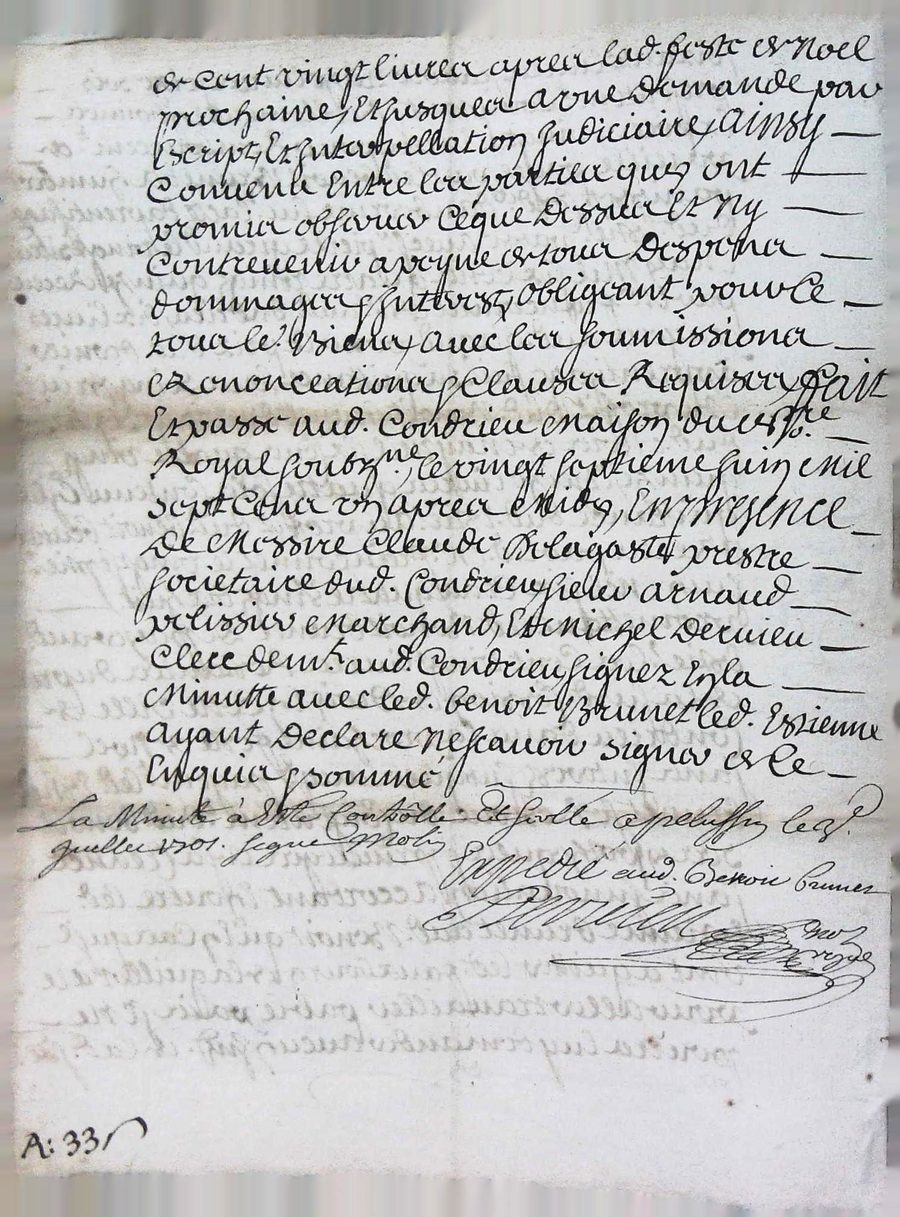 de Cent vingt livres apres lad. feste de Noel
prochaine, Et jusques a une demande par
Escript, Et Interpellation Judiciaire, ainsy
Convenu Entre les parties quy ont
promis observer Ceque Dessus Et Ny
Contrevenir a peyne de tous Despens
dommages & Interest, obligeant pour Ce
tous les Biens, avec les soumissions
& Renonceations & Clauses Requises, ffait
Et passé aud. Condrieu Maison du nore
Royal soubz.né, le vingt septieme Juin Mil
sept Cens un apres Midy, En presence
De Messire Claude prestre
societaire dud. Condrieu sieur arnaud
pelissier Marchand, Et Michel Dervieu
Clerc demt. aud. Condrieu signez En la
Minutte avec led. benoit Brunet led. Estienne
ayant Declare Ne scavoir signer de Ce
Enquis & sommé
La Minute à Esté Contrôllé Et sçellé a pelussin le
juillet 1701. signé
Expedié aud. Benoit brunet
Dervieu
nore
royal
A: 33